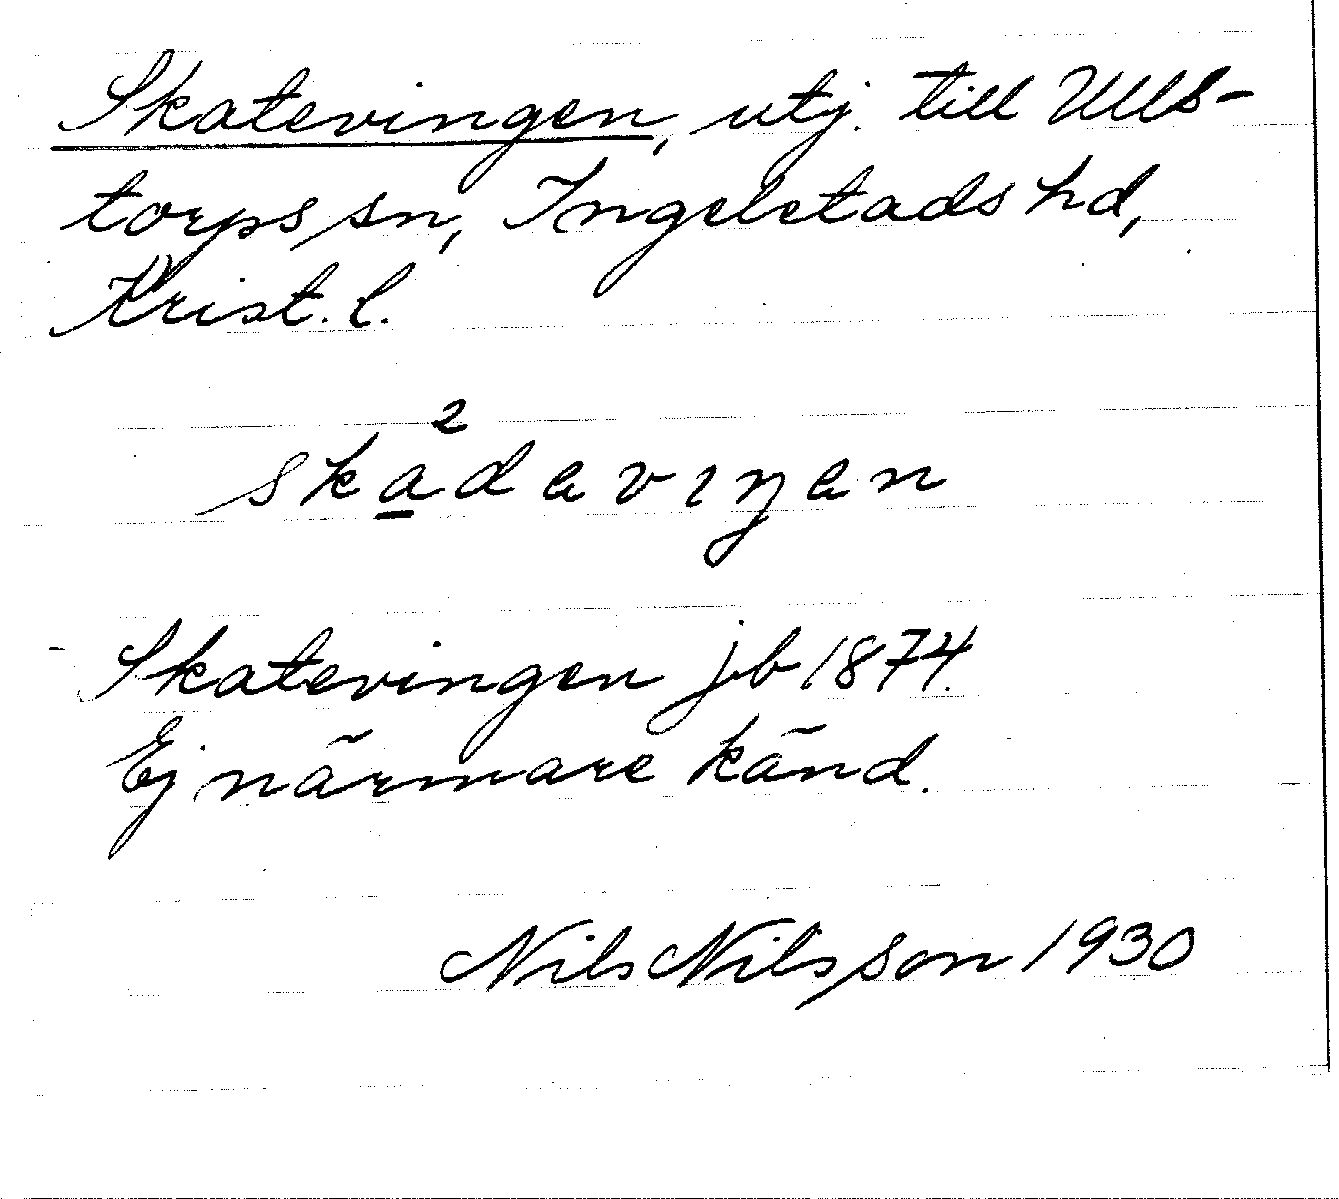 Skatevingen, utj. till Ulls-
torps sn, Ingelstads hd,
Krist. l.
2
skadavıŋan
Skatevingen jb 1874.
Ej närmare känd.
Nils Nilsson 1930